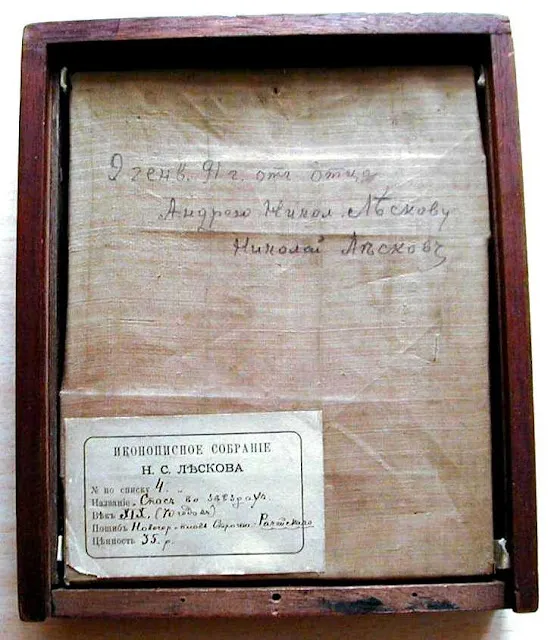 9 генв. 91 г. отъ отца
Андрею Никол. Лѣскову
Николай Лѣсковъ
ИКОНОПИСНОЕ СОБРАНІЕ
Н. С. ЛѢСКОВА
№ по списку 4.
Названіе Спасъ во звѣздахъ
Вѣкъ XIX. (70 годовъ)
Пошибъ Рачейскаго
Цѣнность 35. р.